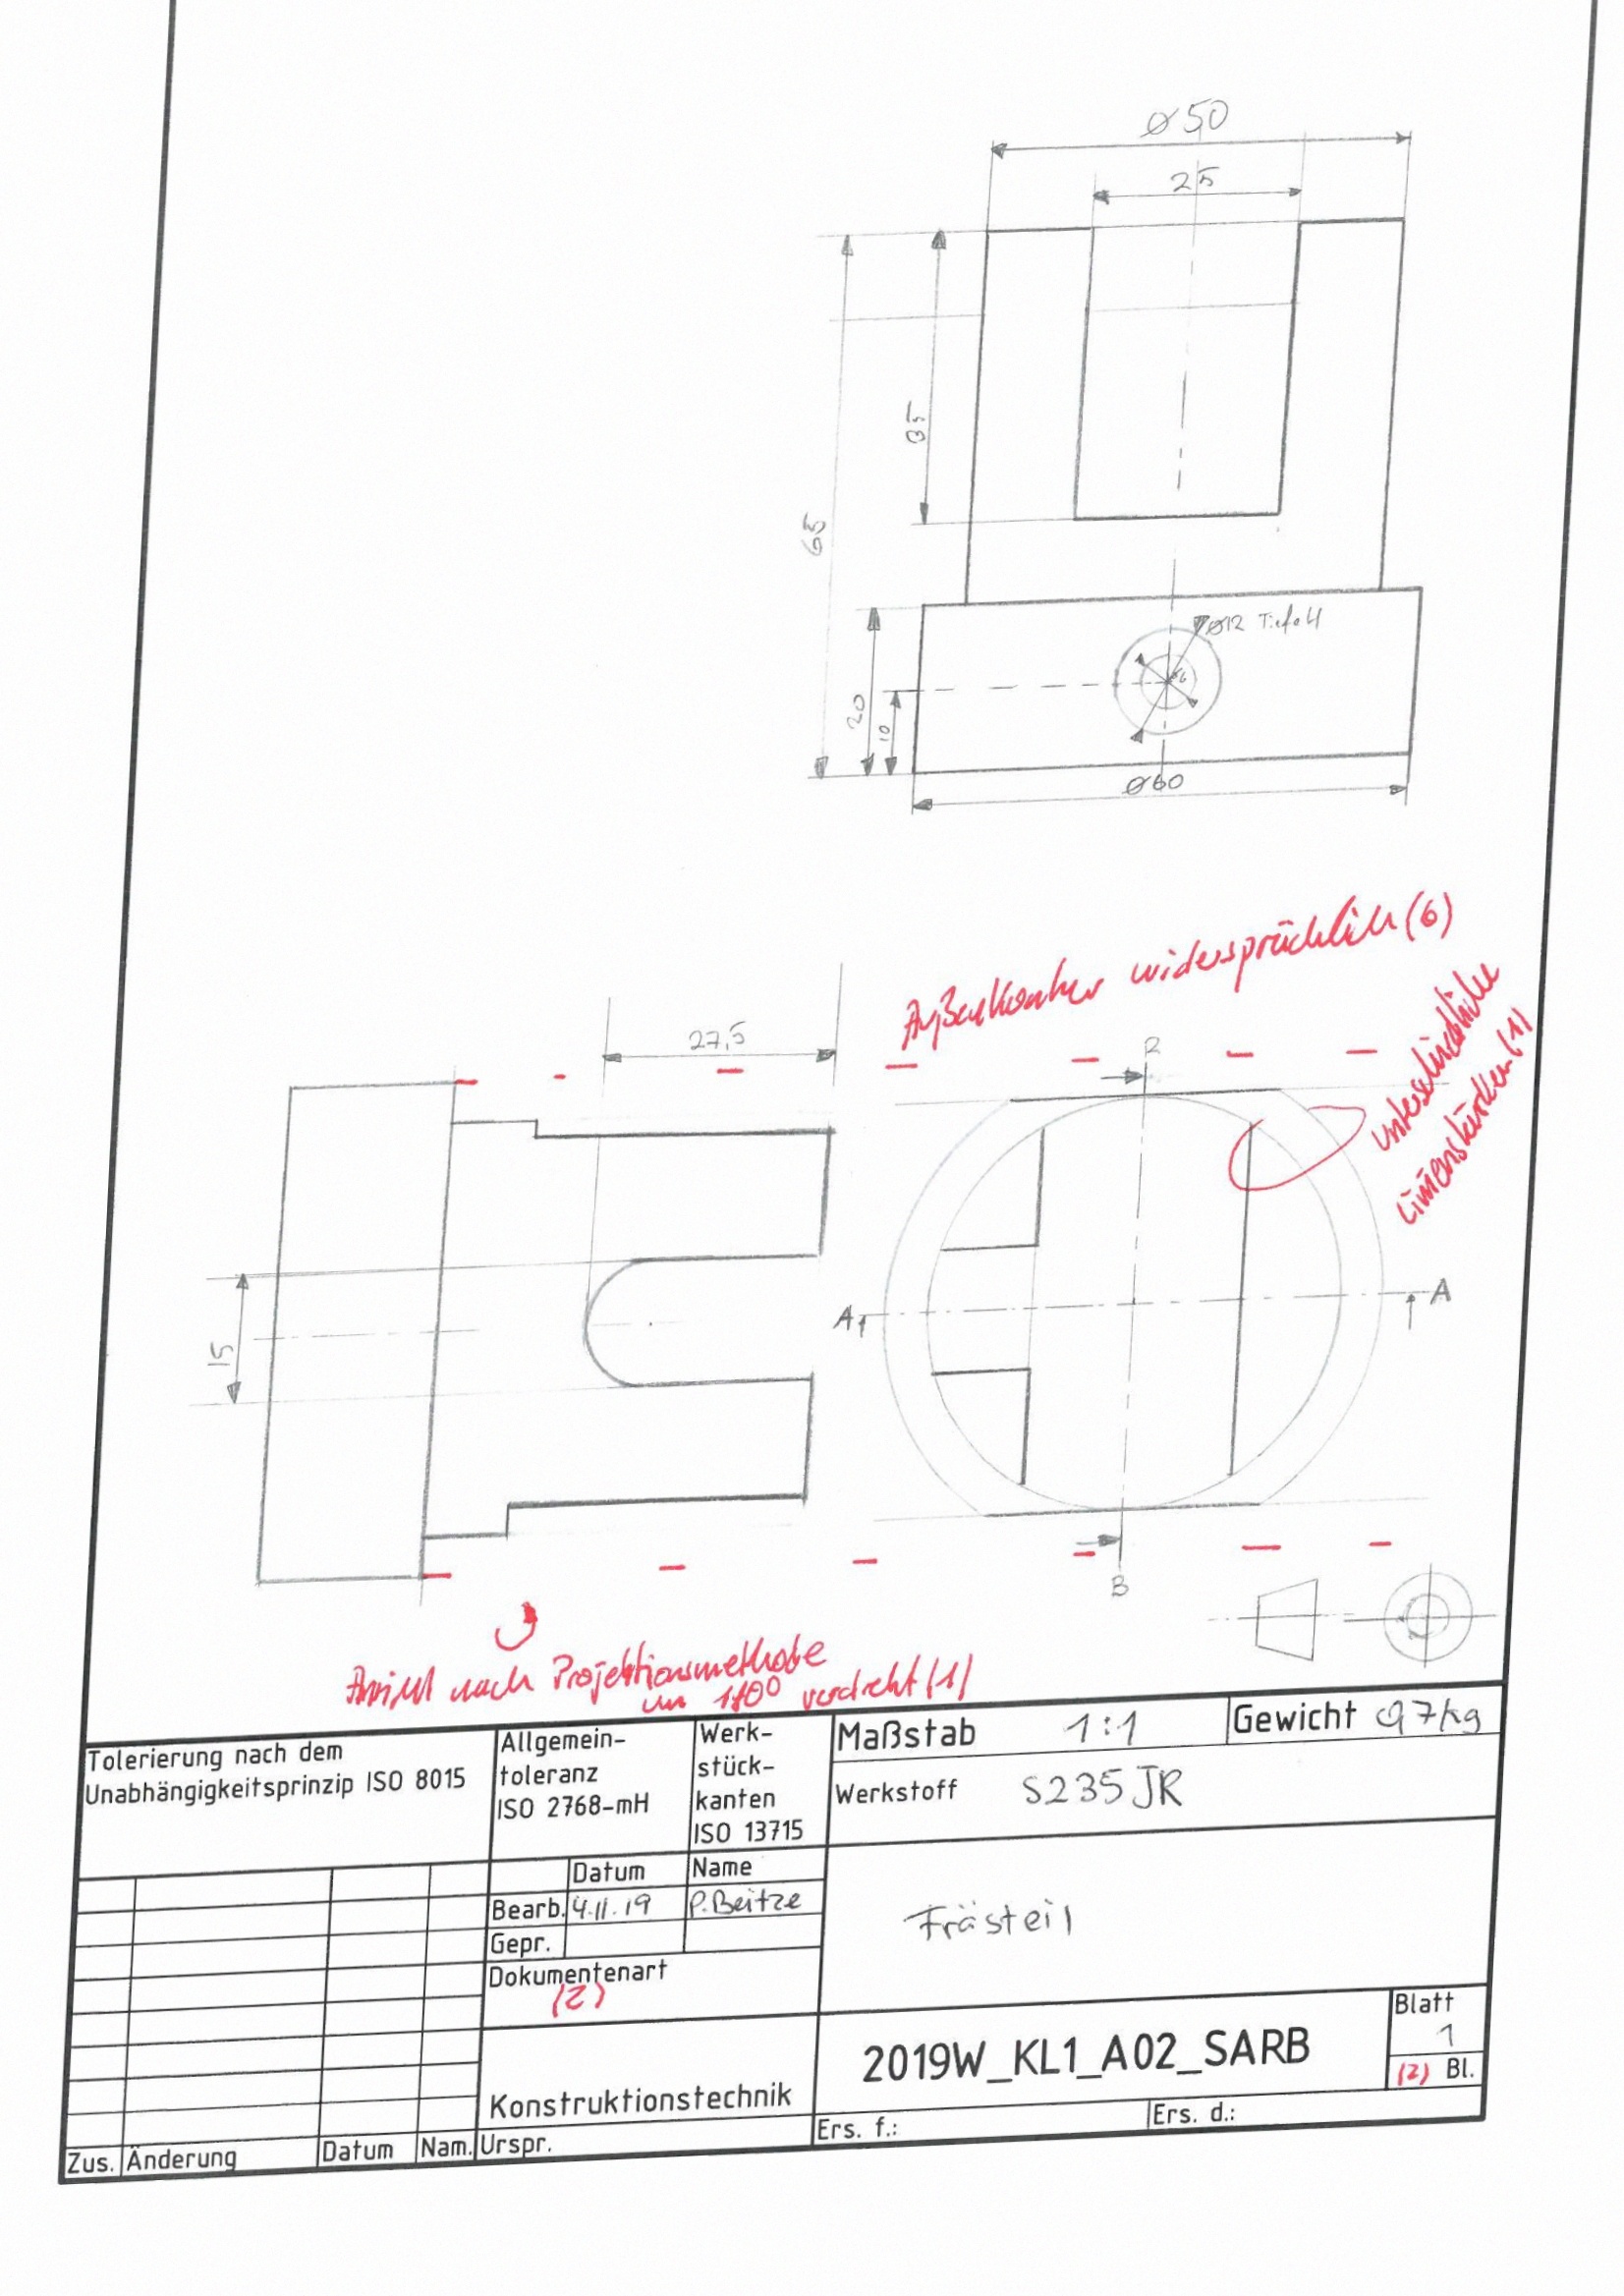 ⌀50
25
35
65
⌀12 Tiefe 4
⌀6
20
10
⌀60
Außenkontur widersprüchlich (6)
unterschiedliche
Linienstärken (1)
27,5
B
15
A
A
B
Ansicht nach Projektionsmethode
um 180° verdreht (1)
Tolerierung nach dem
Unabhängigkeitsprinzip ISO 8015
Allgemein-
toleranz
ISO 2768-mH
Werk-
stück-
kanten
ISO 13715
Maßstab 1:1
Gewicht 0,7kg
Werkstoff S235JR
Datum Name
Bearb. 4.11.19 P.Beitze
Gepr.
Frästeil
Dokumentenart
(2)
Konstruktionstechnik
2019W_KL1_A02_SARB
Blatt
1
(2) Bl.
Zus. Änderung Datum Nam. Urspr. Ers. f.: Ers. d.: